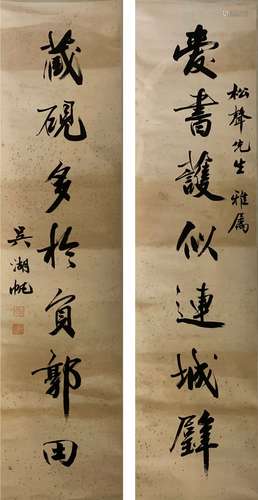 松聲先生雅屬
愛書護似連城璧
藏硯多於負郭田
吳湖帆